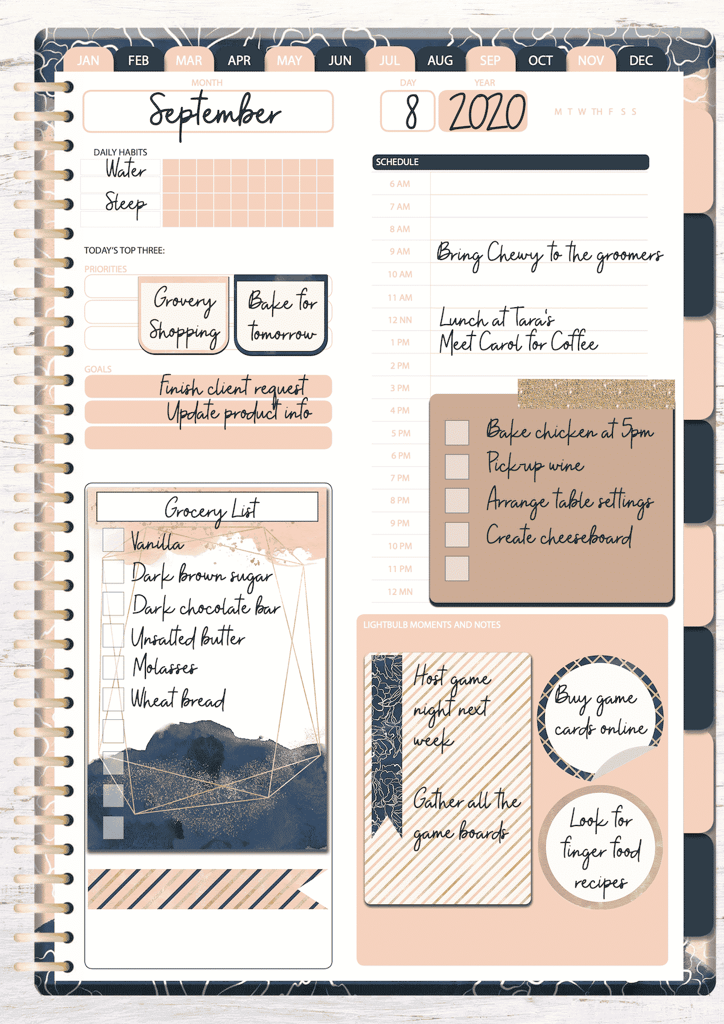 JAN FEB MAR APR MAY JUN JUL AUG SEP OCT NOV DEC
MONTH
September
DAY
8
YEAR
2020
M T W TH F S S
DAILY HABITS
Water
Sleep
TODAY'S TOP THREE:
PRIORITIES
Grovery
Shopping
Bake for
tomorrow
GOALS
Finish client request
Update product info
Grocery List
Vanilla
Dark brown sugar
Dark chocolate bar
Unsalted butter
Molasses
Wheat bread
SCHEDULE
6 AM
7 AM
8 AM
9 AM Bring Chewy to the groomers
10 AM
11 AM
12 NN Lunch at Tara's
1 PM Meet Carol for Coffee
2 PM
3 PM
4 PM
5 PM
6 PM
7 PM
8 PM
9 PM
10 PM
11 PM
12 MN
Bake chicken at 5pm
Pick-up wine
Arrange table settings
Create cheeseboard
LIGHTBULB MOMENTS AND NOTES
Host game
night next
week
Gather all the
game boards
Buy game
cards online
Look for
finger food
recipes